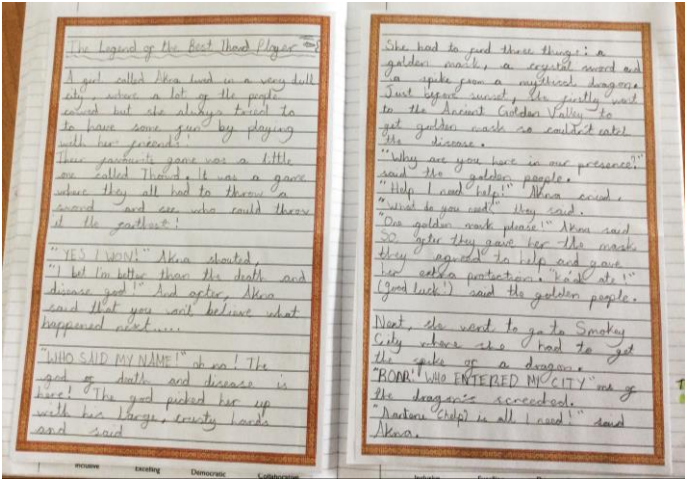 The Legend of the Best Thowd Player
A girl called Akna lived in a very dull
city where a lot of the people
but she always to
to have some fun by playing
with her friends!
Their favourite game was a little
one called Thowd. It was a game
where they all had to throw a
sword and see who could throw
it the
"YES I WON!" Akna shouted,
"I bet I'm better than the death and
disease god!" And after, Akna
said that you won't believe what
happened next.....
"WHO SAID MY NAME!" oh no! The
god of death and disease is
here! The god picked her up
with his large, crusty hands
and said
She had to find three things: a
golden mask, a crystal sword and
a spike from a mythical dragon.
Just before sunset, she firstly went
to the Ancient Golden Valley to
get golden mask so couldn't catch
the disease.
"Why are you here in our presence?"
said the golden people.
"Help I need help!" Akna cried,
"What do you need," they said.
"One golden mask please!" Akna said
So after they gave her the mask
they agreed to help and gave
her extra protection. ate!"
(Good luck!) said the golden people.
Next, she went to go to Smokey
City where she had to get
the spike of a dragon.
"ROAR! WHO ENTERED MY CITY" one of
the dragon's screeched.
(help) is all I need!" said
Akna.
Inclusive Excelling Democratic Collaborative
Inclusive